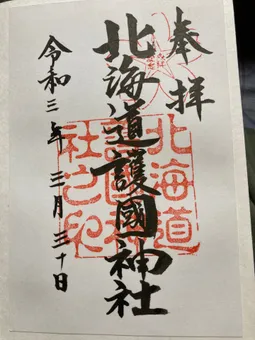 奉拝
北海道護國神社
北海道
護國神
社之印
令和三年三月三十日